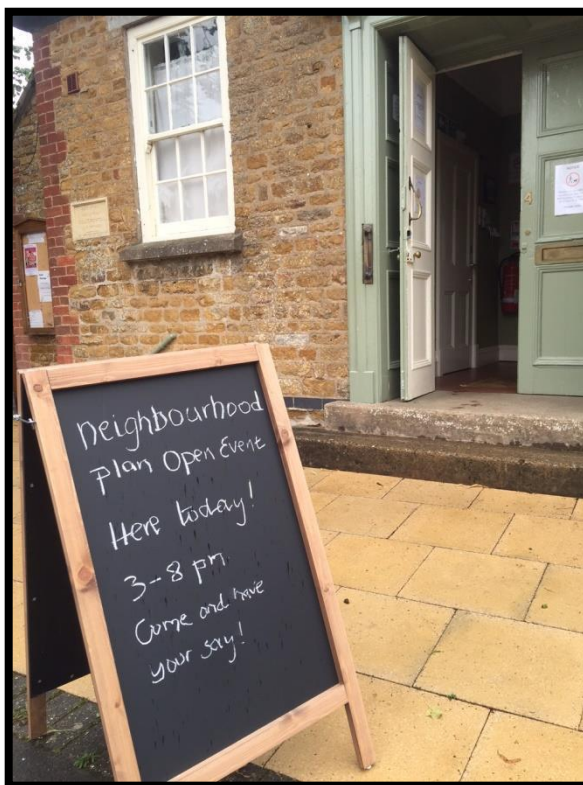 neighbourhood
plan Open Event
Here today!
3-8 pm
Come and have
your say!